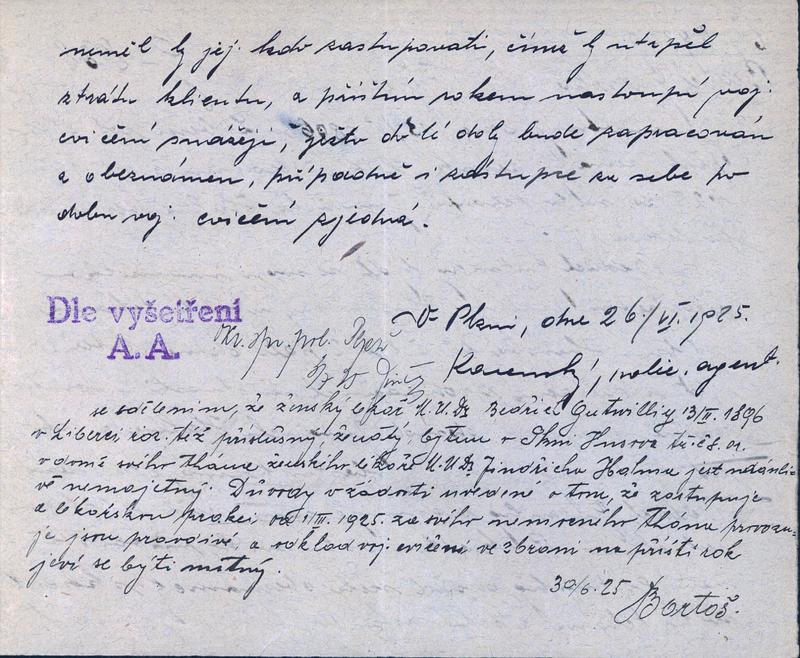 neměl by jej kdo zastupovati, čímž by utrpěl
ztrátu klientu, a příštím rokem nastoupí voj.
cvičení snázeji, ježto do té doby bude zapracován
a obeznámen, případně i zástupce za sebe po
dobu voj. cvičení zjedná.
V Plzni, dne 26/VI. 1925.
Dle vyšetření
A.A.
, polic. agent.
se sdělením, že ženský lékař M.U.Dr. Bedřich Gutwillig 13/III. 1896
v Liberci roz. též příslušný, ženatý bytem v Husova tř. č. 8. n.
v domě svého tchána ženského lékaře M.U.Dr. Jindřicha Halma jest
vě nemajetný. Důvody v žádosti uvedené o tom, že zastupuje
a lékařskou praksi od 1/III. 1925. za svého nemocného tchána provozu-
je jsou pravdivé a odklad voj. cvičení ve zbrani na příští rok
jeví se býti nutný.
30/6. 25
Bartoš.